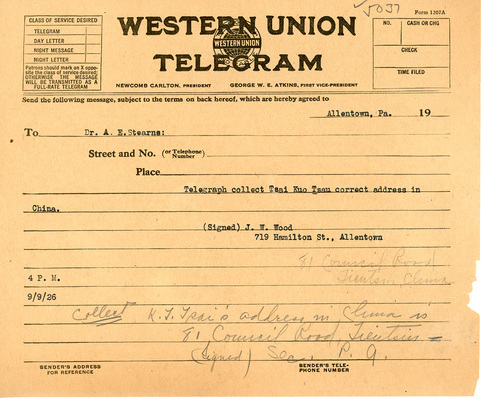 5037
Form 1207A
CLASS OF SERVICE DESIRED
TELEGRAM
DAY LETTER
NIGHT MESSAGE
NIGHT LETTER
Patrons should mark an X oppo-
site the class of service desired;
OTHERWISE THE MESSAGE
WILL BE TRANSMITTED AS A
FULL-RATE TELEGRAM
WESTERN UNION
WESTERN UNION
TELEGRAM
NEWCOMB CARLTON, PRESIDENT GEORGE W. E. ATKINS, FIRST VICE-PRESIDENT
NO. CASH OR CHG
CHECK
TIME FILED
Send the following message, subject to the terms on back hereof, which are hereby agreed to
Allentown, Pa. 19
To Dr. A. E.Stearns:
Street and No. (or Telephone Number)
Place
Telegraph collect Tsai Kuo Tsau correct address in
China.
(Signed) J. W. Wood
719 Hamilton St., Allentown
81 Council Road
Tientsin China
4 P. M.
9/9/26
collect K. T. Tsai's address in China is
81 Council Road, Tientsin
(signed) Sec. P. A.
SENDER'S ADDRESS
FOR REFERENCE
SENDER'S TELE-
PHONE NUMBER